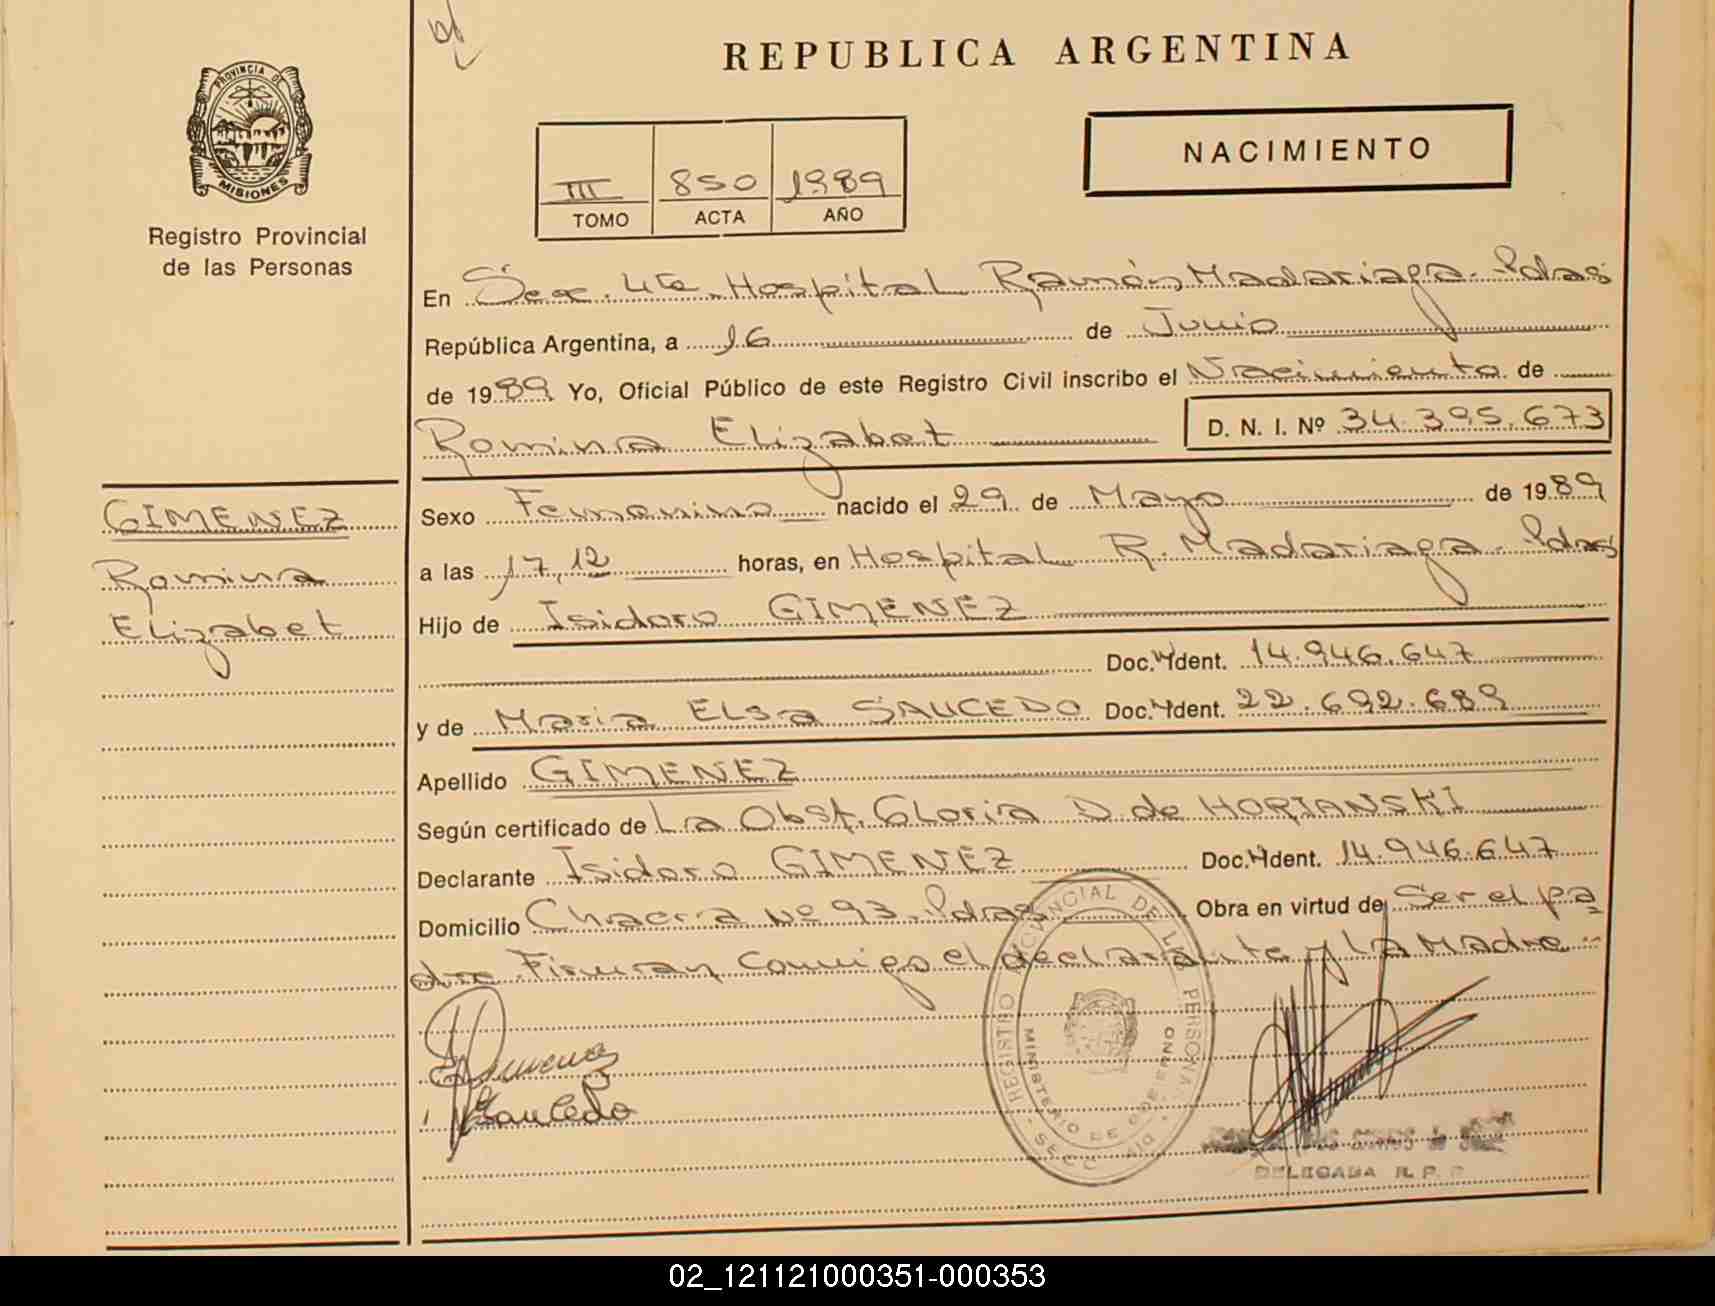 REPUBLICA ARGENTINA
PROVINCIA DE
MISIONES
Registro Provincial
de las Personas
III 850 1989
TOMO ACTA AÑO
NACIMIENTO
En Sec. 4ta. Hospital Ramón Madariaga - Pdas
República Argentina, a 16 de Junio
de 1989 Yo, Oficial Público de este Registro Civil inscribo el Nacimiento de
Romina Elizabet D. N. I. Nº 34.395.673
GIMENEZ
Romina
Elizabet
Sexo Femenino nacido el 29 de Mayo de 1989
a las 17,12 horas, en Hospital R. Madariaga - Pdas
Hijo de Isidoro GIMENEZ
Doc. Ident. 14.946.647
y de Maria Elsa SAUCEDO Doc. Ident. 22.692.689
Apellido GIMENEZ
Según certificado de La Obst. Gloria D. de HORIANSKI
Declarante Isidoro GIMENEZ Doc. Ident. 14.946.647
Domicilio Chacra Nº 93 - Pdas Obra en virtud de Ser el pa
dre. Firman conmigo el declarante y La Madre
REGISTRO PROVINCIAL DE LAS PERSONAS
MINISTERIO DE GOBIERNO
SECC.
Gimenez
Saucedo
DELEGADA R. P. P.
02_121121000351-000353